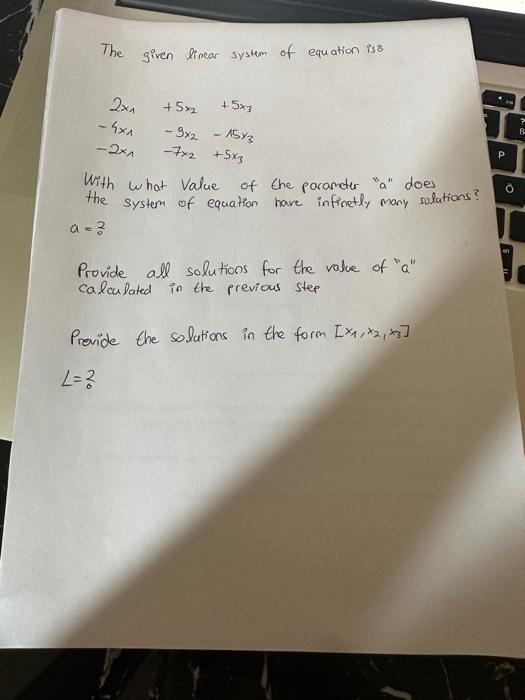 The given linear system of equation is:
2x₁ +5x₂ +5x₃
-4x₁ -9x₂ -15x₃
-2x₁ -7x₂ +5x₃
With what Value of the parameter "a" does
the system of equation have infinetly many solutions?
a = ?
Provide all solutions for the value of "a"
calculated in the previous step
Provide the solutions in the form [x₁, x₂, x₃]
L = ?
P
Ö